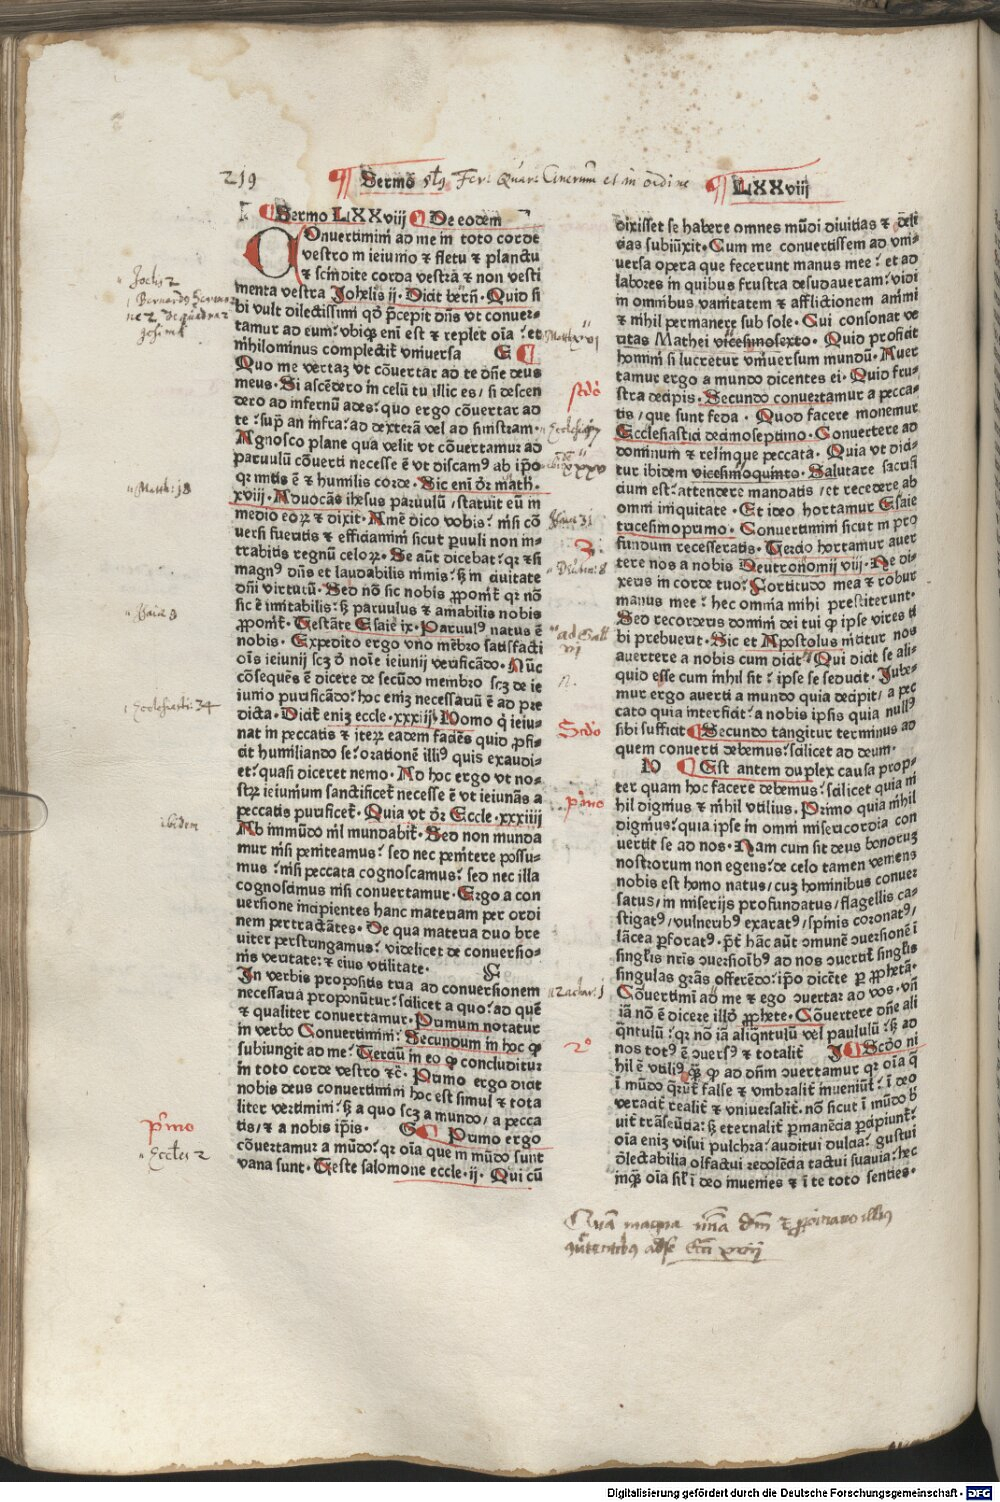 219
¶ Sermo st9 Fer: Quar: Cinerum et in ordine ¶ LXXviij
Sermo LXXviij De eodem
COnuertimini ad me in toto corde
vestro in ieiunio ⁊ fletu ⁊ planctu
⁊ scindite corda vestrā ⁊ non vesti
menta vestra Johelis ij. Dicit berñ. Quid si
bi vult dilectissimi qđ p̄cepit dñs vt conuer-
tamur ad eum: vbiqȝ eni ē est ⁊ replet oīa ? et
nihilominus complectit vniuersa E
Quo me vertaȝ vt cōuertar ad te dñe deus
meus. Si ascēdero in celū tu illic es / si descen
dero ad infernū ades: quo ergo cōuertar ad
te: supͣ an infra: ad dexterā vel ad sinistram.
Agnosco plane qua velit vt cōuertamur ad
paruulū cōuerti necesse ē vt discamꝰ ab ip̄o
qꝛ mitis ē ⁊ humilis corde. Sic eni d̄r math.
xviij. Aduocās ihesus paruulū / statuit eū in
medio eoꝝ ⁊ dixit. Amē dico vobis: nisi cō
uersi fueritis ⁊ efficiamini sicut p̱uuli non in-
trabitis regnū celoꝝ. Se aūt dicebat: qꝛ ⁊ si
magnꝰ dñs et laudabilis nimis: sȝ in ciuitate
dñi virtutū. Sed nō sic nobis ꝓponit qꝛ nō
sic ē imitabilis: sȝ paruulus ⁊ amabilis nobis
ꝓponit. Testāte Esaie ix. Paruulꝰ natus ē
nobis. Expedito ergo vno mēbro satisfacti
oīs ieiunij scȝ d̄ noīe ieiunij verificādo. Nūc
cōsequēs ē dicere de secūdo membro scȝ de ie
iunio purificādo: hoc eniȝ necessariū ē ad pre
dicta. Dicit eniȝ eccle. xxxiiij. Homo q̇ ieiu-
nat in peccatis ⁊ iteꝝ eadem faciēs quid ꝓfi-
cit humiliando se: orationē illiꝰ quis exaudi-
et: quasi diceret nemo. Ad hoc ergo vt no-
stꝝ ieiunium sanctificet necesse ē vt ieiunās a
peccatis purificet. Quia vt d̄r Eccle. xxxiiij
Ab immūdo nil mundabit. Sed non munda
mur nisi peniteamus: sed nec penitere possu-
mus: nisi peccata cognoscamus: sed nec illa
cognoscimus nisi conuertamur. Ergo a con
uersione incipientes hanc materiam per ordi
nem pertractātes. De qua materia duo bre
uiter perstringamus: videlicet de conuersio-
nis veritate: ⁊ eius vtilitate. F
In verbis propositis tria ad conuersionem
necessaria proponūtur: scilicet a quo: ad quē
⁊ qualiter conuertamur. Primum notatur
in verbo Conuertimini: Secundum in hoc ꝙ
subiungit ad me: Terciū in eo ꝙ concluditur
in toto corde vestro ⁊c̄. Primo ergo dicit
nobis deus conuertimini hoc est simul ⁊ tota
liter vertimini: sȝ a quo scȝ a mundo / a pecca
tis / ⁊ a nobis ip̄is. G Primo ergo
cōuertamur a mūdo: qꝛ oīa que in mūdo sunt
vana sunt. Teste salomone eccle. ij. Qui cū
dixisset se habere omnes mūdi diuitias ⁊ deli
cias subiūxit. Cum me conuertissem ad vni-
uersa opera que fecerunt manus mee: et ad
labores in quibus frustra desudaueram: vidi
in omnibus vanitatem ⁊ afflictionem animi
⁊ nihil permanere sub sole. Cui consonat ve
ritas Mathei vicesimosexto. Quid proficit
homini si lucretur vniuersum mundū. Auer
tamur ergo a mundo dicentes ei. Quid fru-
stra decipis. Secundo conuertamur a pecca-
tis / que sunt feda. Quod facere monemur
Ecclesiastici decimoseptimo. Conuertere ad
dominum ⁊ relinque peccata. Quia vt dici-
tur ibidem vicesimoquinto. Salutare sacrifi
cium est: attendere mandatis / et recedere ab
omni iniquitate. Et ideo hortamur Esaie
tricesimoprimo. Conuertimini sicut in pro
fundum recesseratis. Tercio hortamur auer
tere nos a nobis Deutronomij viij. Ne di-
xeris in corde tuo: Fortitudo mea ⁊ robur
manus mee: hec omnia mihi prestiterunt.
Sed recorderis domini dei tui ꝙ ipse vires ti
bi prebuerit. Sic et Apostolus nititur nos
auertere a nobis cum dicit: Qui dicit se ali-
quid esse cum nihil sit: ipse se seducit. Jube-
mur ergo auerti a mundo quia decipit / a pec
cato quia interficit: a nobis ipsis quia nullꝰ
sibi sufficit Secundo tangitur terminus ad
quem conuerti debemus: scilicet ad deum.
H Est autem duplex causa prop-
ter quam hoc facere debemus: scilicet quia ni
hil dignius ⁊ nihil vtilius. Primo quia nihil
dignius: quia ipse in omni misericordia con
uertit se ad nos. Nam cum sit deus bonoruȝ
nostrorum non egens: de celo tamen veniens
nobis est homo natus / cuȝ hominibus conuer
satus / in miserijs profundatus / flagellis ca-
stigatꝰ / vulneribꝰ exaratꝰ / spinis coronatꝰ /
lācea ꝑforatꝰ. p̄t hāc aūt ɔmunē ɔuersionē ī
singłis nris ɔuersioībꝰ ad nos ɔuertit singłis
singulas grās offerēdo: ip̄o dicēte ꝑ ꝓphetā.
Cōuertimī ad me ⁊ ego ɔuertar ad vos. vñ
iā nō ē dicere illd̓ ꝓphete. Cōuertere dñe ali
q̄ntulū: qꝛ nō iā aliq̄ntulū vel paululū: sȝ ad
nos totꝰ ē ɔuersꝰ ⁊ totalit̄ J Scd̓o ni
hil ē vtiliꝰ qȝ ꝙ ad dñm ɔuertamur qꝛ oīa q̄
ī mūdo q̄rūt̄ false ⁊ vmbralit̄ inueniūt̄: ī deo
veracit̄ realit̄ ⁊ vniuersalit̄. nō sicut ī mūdo b̄
uit̄ trāseūtia: sȝ eternalit̄ ꝑmanēcia ꝑcipiunt̄:
oīa eniȝ visui pulchra: auditui dulcia: gustui
d̄lectabilia olfactui redolēcia tactui suauia: hec
inqȝ oīa sil̓ ī deo inuenies ⁊ ī te toto senties.
Joelis 2
Matth: 18
Isaiæ 9
Ecclesiasti: 34
ibidem
p̄mo
Eccles 2
Matth xvi
scd̓o
xxxv
Isaiæ 31
3.
ad Gall
vi
n.
Scd̓o
p̄mo
Zachar: 1
2º
Quā magna mīa dm̄ ⁊ ꝓpitiatio illius